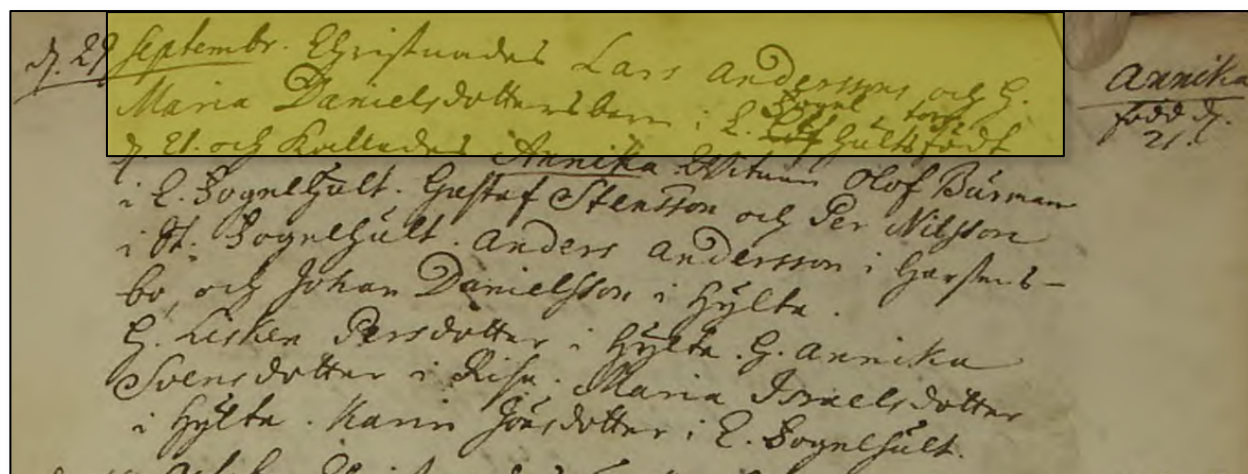 d. 29 Septembr. Christnades Lars Anderssons och H.
Maria Danielsdotters barn i L. Fogel torp
Hults född
d. 21. och kallades Annika. Witnen Olof Burman
i L. Fogelhult. Gustaf Stensson och Per Nilsson
i St. Fogelhult. Anders Andersson i
bo, och Johan Danielsson i Hylta.
H. Lisken Persdotter i Hylta. H. Annika
Svensdotter i Risa. Maria Israelsdotter
i Hylta. Karin Jönsdotter i L. Fogelhult.
Annika
född d.
21.